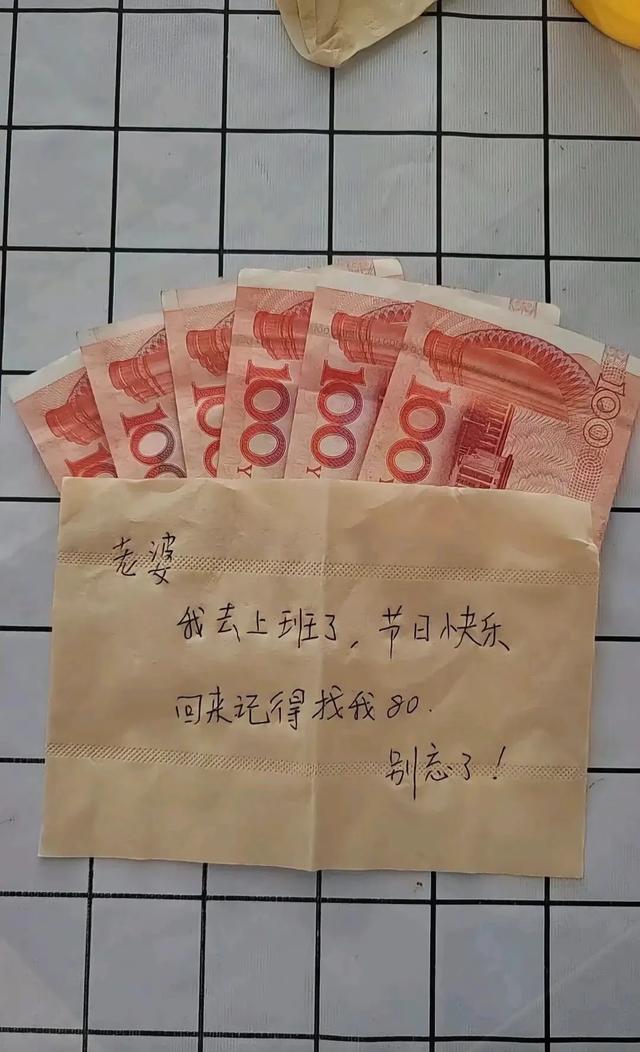 100
100
100
100
100
100
100
老婆
我去上班了，节日快乐
回来记得找我80.
别忘了！